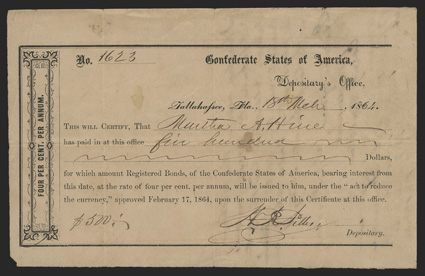 No. 1623 Confederate States of America,
Depositary's Office,
Tallahassee, Fla. 18th Mch, 1864.
THIS WILL CERTIFY, That Martha A. Hine
has paid in at this office five hundred
Dollars,
for which amount Registered Bonds, of the Confederate States of America, bearing interest from
this date, at the rate of four per cent. per annum, will be issued to him, under the "act to reduce
the currency," approved February 17, 1864, upon the surrender of this Certificate at this office.
$500.
Depositary.
FOUR PER CENT. PER ANNUM.